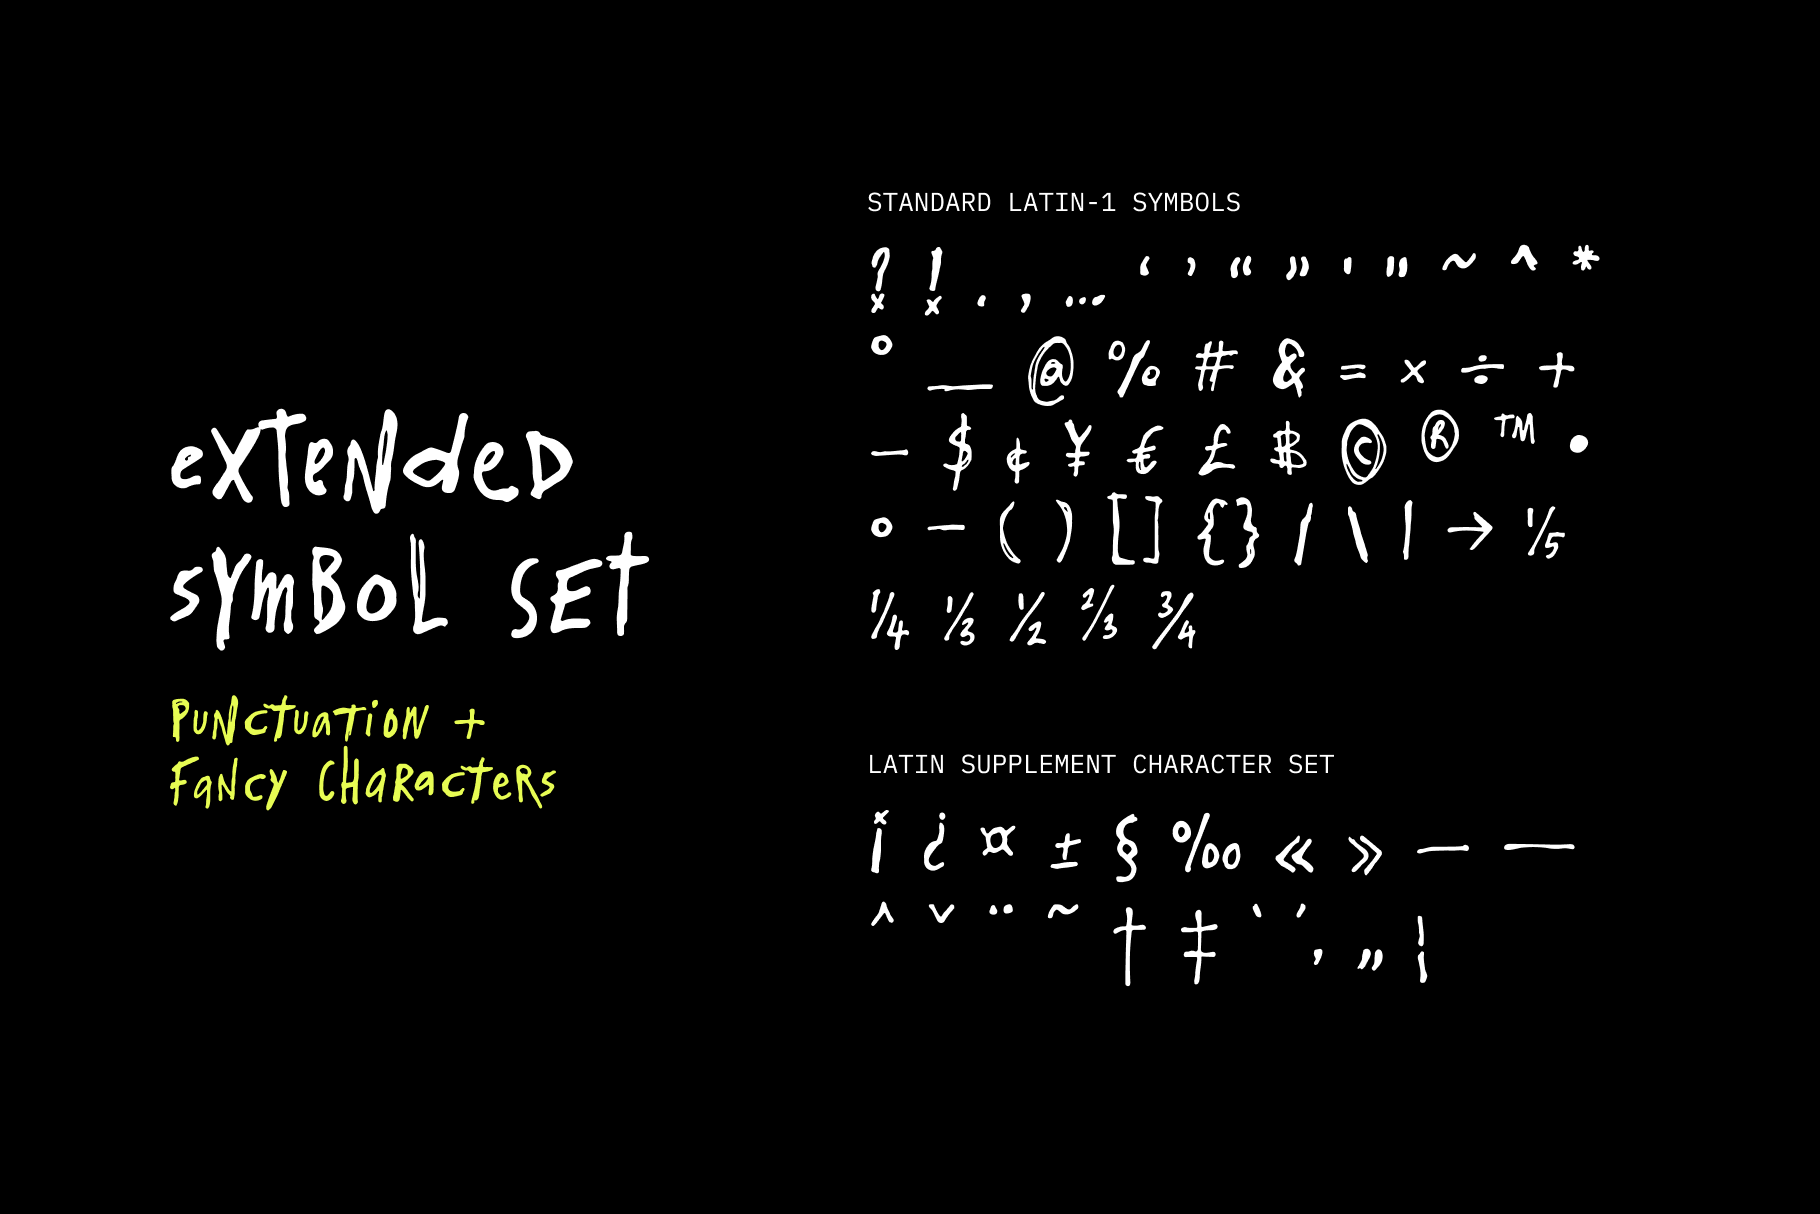 exTendeD
sYmBoL SET
PuNcTuaTioN +
FaNcY CHaRacTeRs
STANDARD LATIN-1 SYMBOLS
? ! . , … ‘ ’ “ ” ' " ~ ^ *
° _ @ % # & = × ÷ +
− $ ¢ ¥ € £ ₿ © ® ™ •
° - ( ) [ ] { } / \ | → ⅕
¼ ⅓ ½ ⅔ ¾
LATIN SUPPLEMENT CHARACTER SET
¡ ¿ ¤ ± § ‰ « » – —
ˆ ˇ ¨ ˜ † ‡ ` ´ ‚ „ ¦